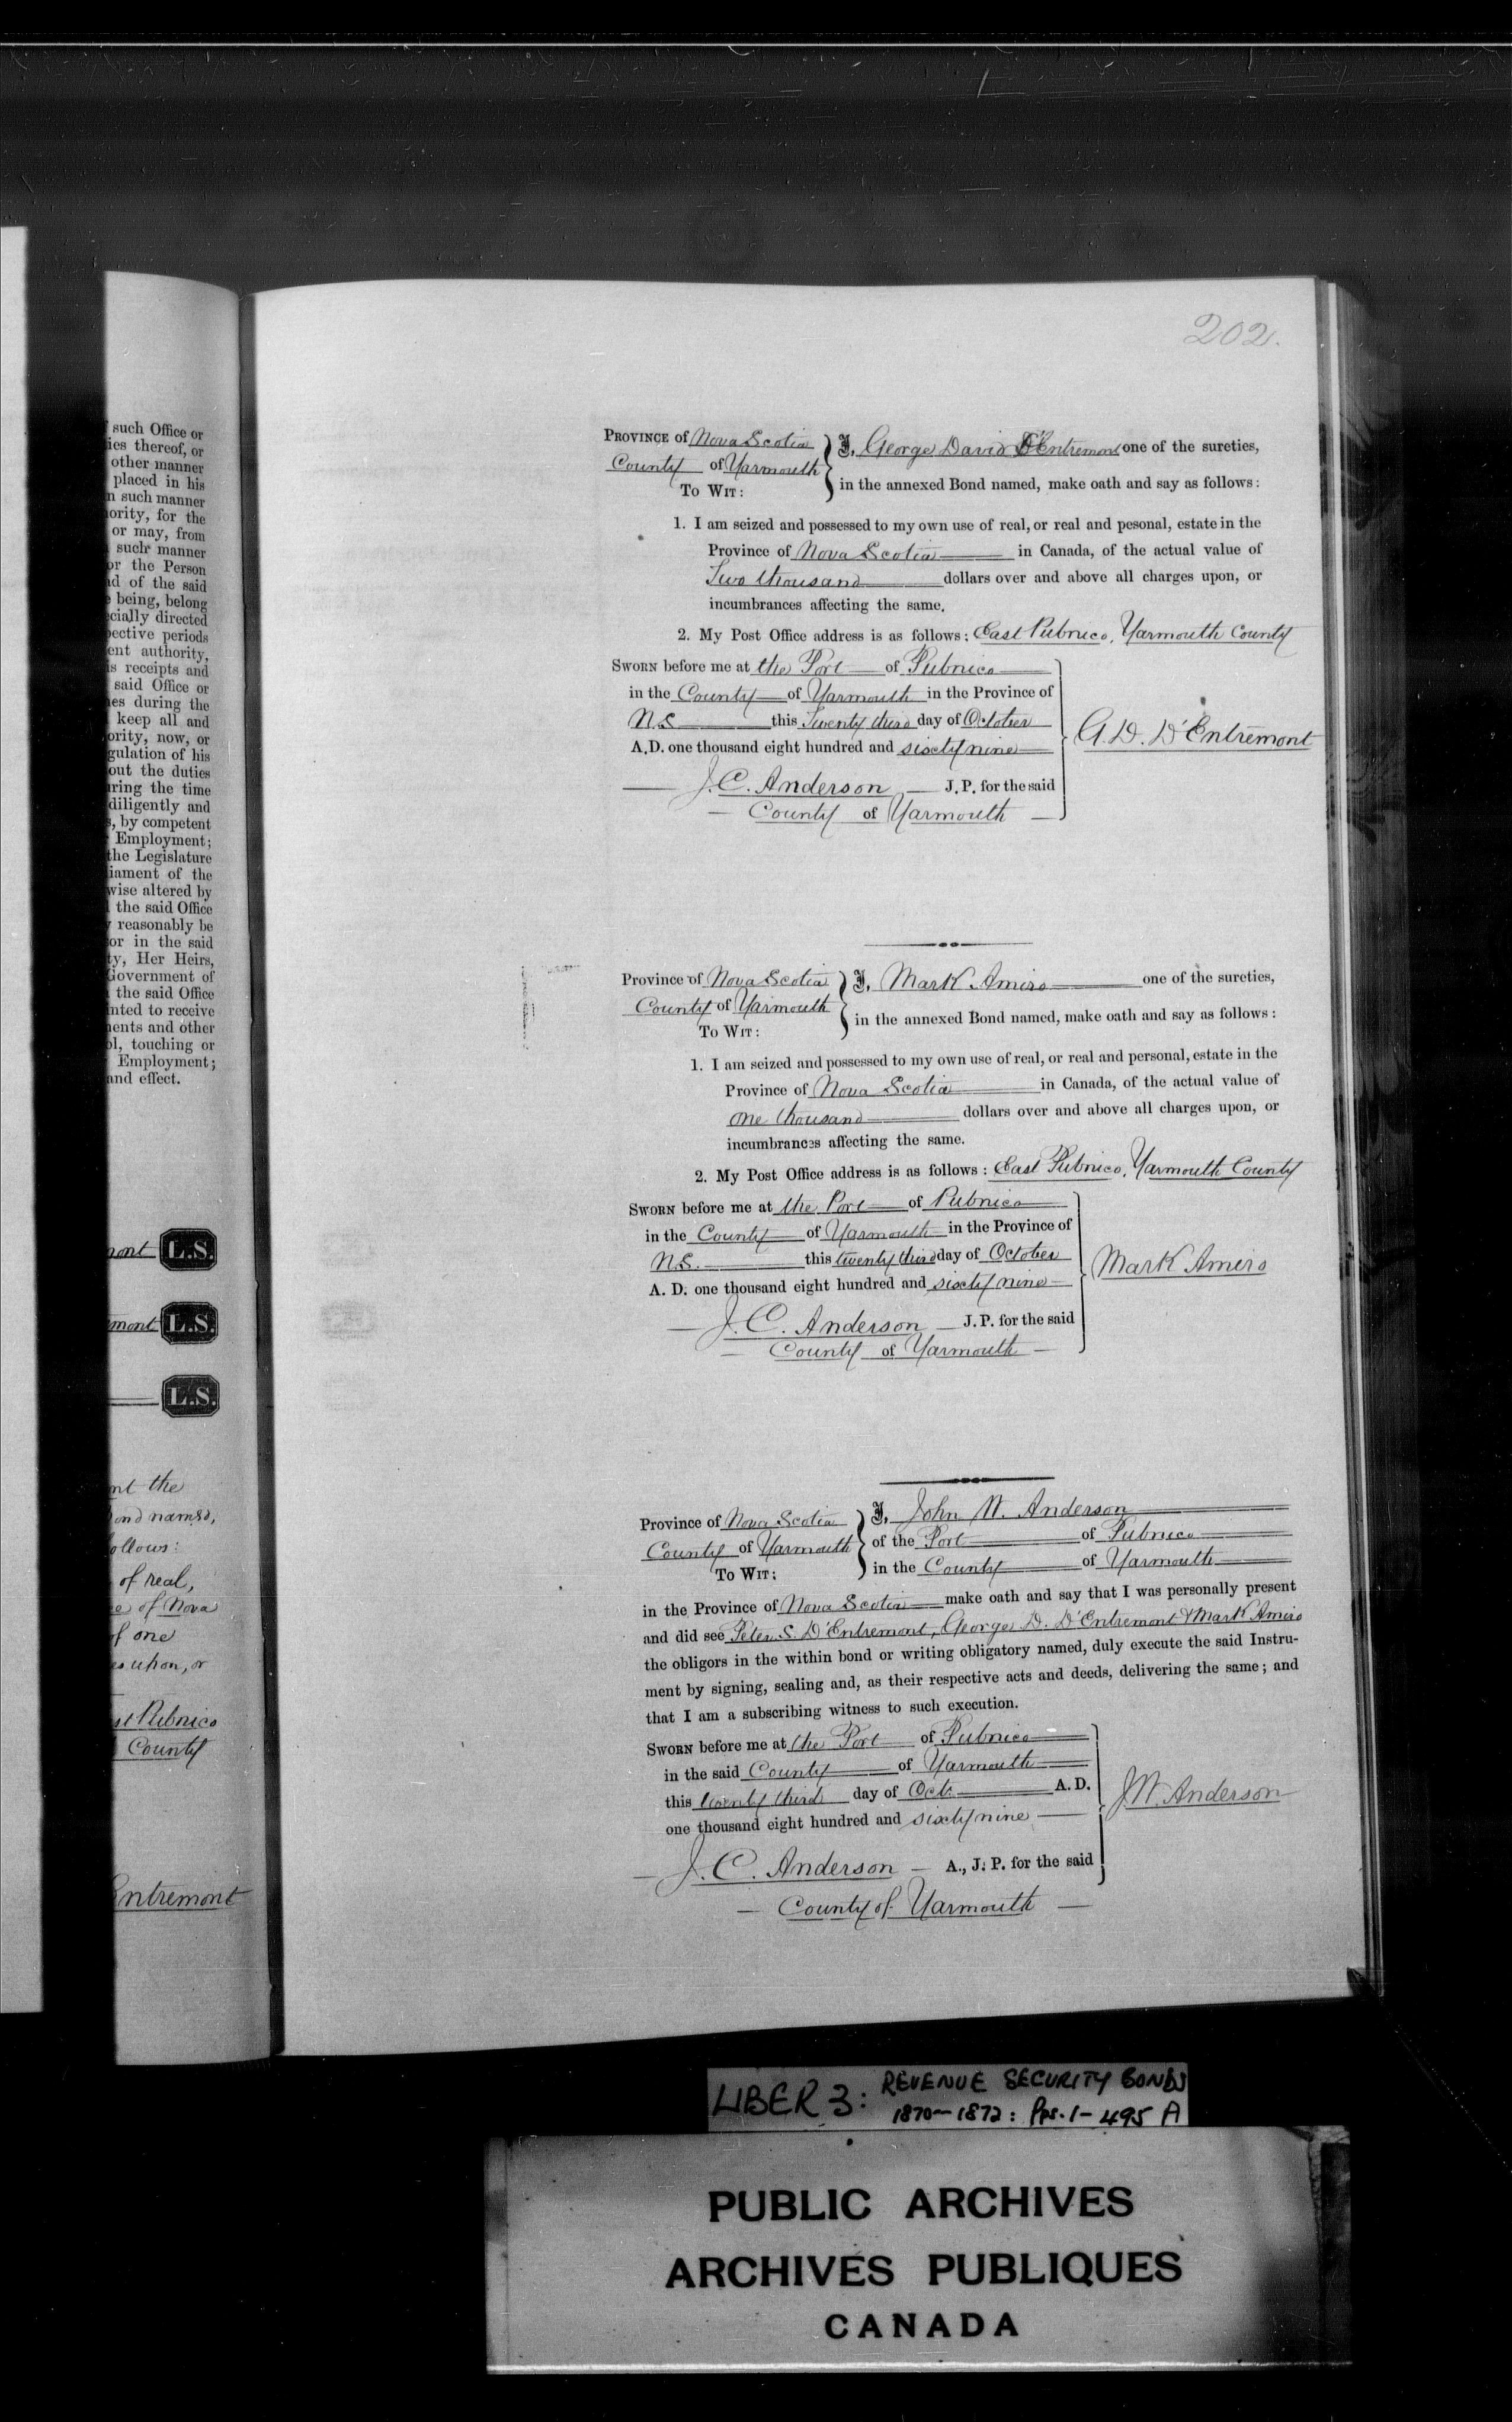 such Office or
ies thereof, or
other manner
placed in his
n such manner
ority, for the
or may, from
such manner
or the Person
d of the said
being, belong
cially directed
pective periods
ent authority,
is receipts and
said Office or
es during the
keep all and
ority, now, or
gulation of his
out the duties
uring the time
diligently and
s, by competent
Employment;
the Legislature
iament of the
wise altered by
the said Office
reasonably be
or in the said
ty, Her Heirs,
Government of
the said Office
nted to receive
ents and other
ol, touching or
Employment;
and effect.
mont L.S.
emont L.S.
L.S.
nt the
ond named,
ollows:
of real,
e of Nova
of one
es upon, or
st Pubnico
County
Entremont
202.
PROVINCE of Nova Scotia
County of Yarmouth
TO WIT:
I, George David D'Entremont one of the sureties,
in the annexed Bond named, make oath and say as follows:
1. I am seized and possessed to my own use of real, or real and pesonal, estate in the
Province of Nova Scotia in Canada, of the actual value of
Two thousand dollars over and above all charges upon, or
incumbrances affecting the same.
2. My Post Office address is as follows: East Pubnico, Yarmouth County
SWORN before me at the Port of Pubnico
in the County of Yarmouth in the Province of
N.S. this Twenty third day of October
A.D. one thousand eight hundred and sixty nine
G. D. D'Entremont
J. C. Anderson J.P. for the said
County of Yarmouth
Province of Nova Scotia
County of Yarmouth
TO WIT:
I, Mark Amiro one of the sureties,
in the annexed Bond named, make oath and say as follows:
1. I am seized and possessed to my own use of real, or real and personal, estate in the
Province of Nova Scotia in Canada, of the actual value of
one thousand dollars over and above all charges upon, or
incumbrances affecting the same.
2. My Post Office address is as follows: East Pubnico, Yarmouth County
SWORN before me at the Port of Pubnico
in the County of Yarmouth in the Province of
N.S. this twenty third day of October
A. D. one thousand eight hundred and sixty nine
Mark Amiro
J. C. Anderson J. P. for the said
County of Yarmouth
Province of Nova Scotia
County of Yarmouth
TO WIT:
I, John W. Anderson
of the Port of Pubnico
in the County of Yarmouth
in the Province of Nova Scotia make oath and say that I was personally present
and did see Peter S. D'Entremont, George D. D'Entremont & Mark Amiro
the obligors in the within bond or writing obligatory named, duly execute the said Instru-
ment by signing, sealing and, as their respective acts and deeds, delivering the same; and
that I am a subscribing witness to such execution.
SWORN before me at the Port of Pubnico
in the said County of Yarmouth
this twenty third day of Oct. A. D.
one thousand eight hundred and sixty nine
J. W. Anderson
J. C. Anderson A., J. P. for the said
County of Yarmouth
LIBER 3: REVENUE SECURITY BONDS
1870-1872: Pps. 1-495 A
PUBLIC ARCHIVES
ARCHIVES PUBLIQUES
CANADA